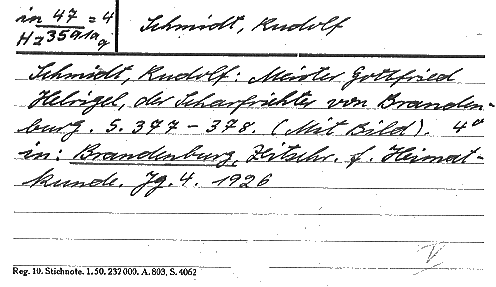 in 47 = 4
Hz 3591a q
Schmidt, Rudolf
Schmidt, Rudolf: Meister Gottfried
Helrigel, der Scharfrichter von Branden-
burg. S. 377-378. (Mit Bild). 4°
in: Brandenburg, Zeitschr. f. Heimat-
kunde. Jg. 4. 1926
V
Reg. 10. Stichnote. 1. 50. 232 000. A. 803, S. 4062